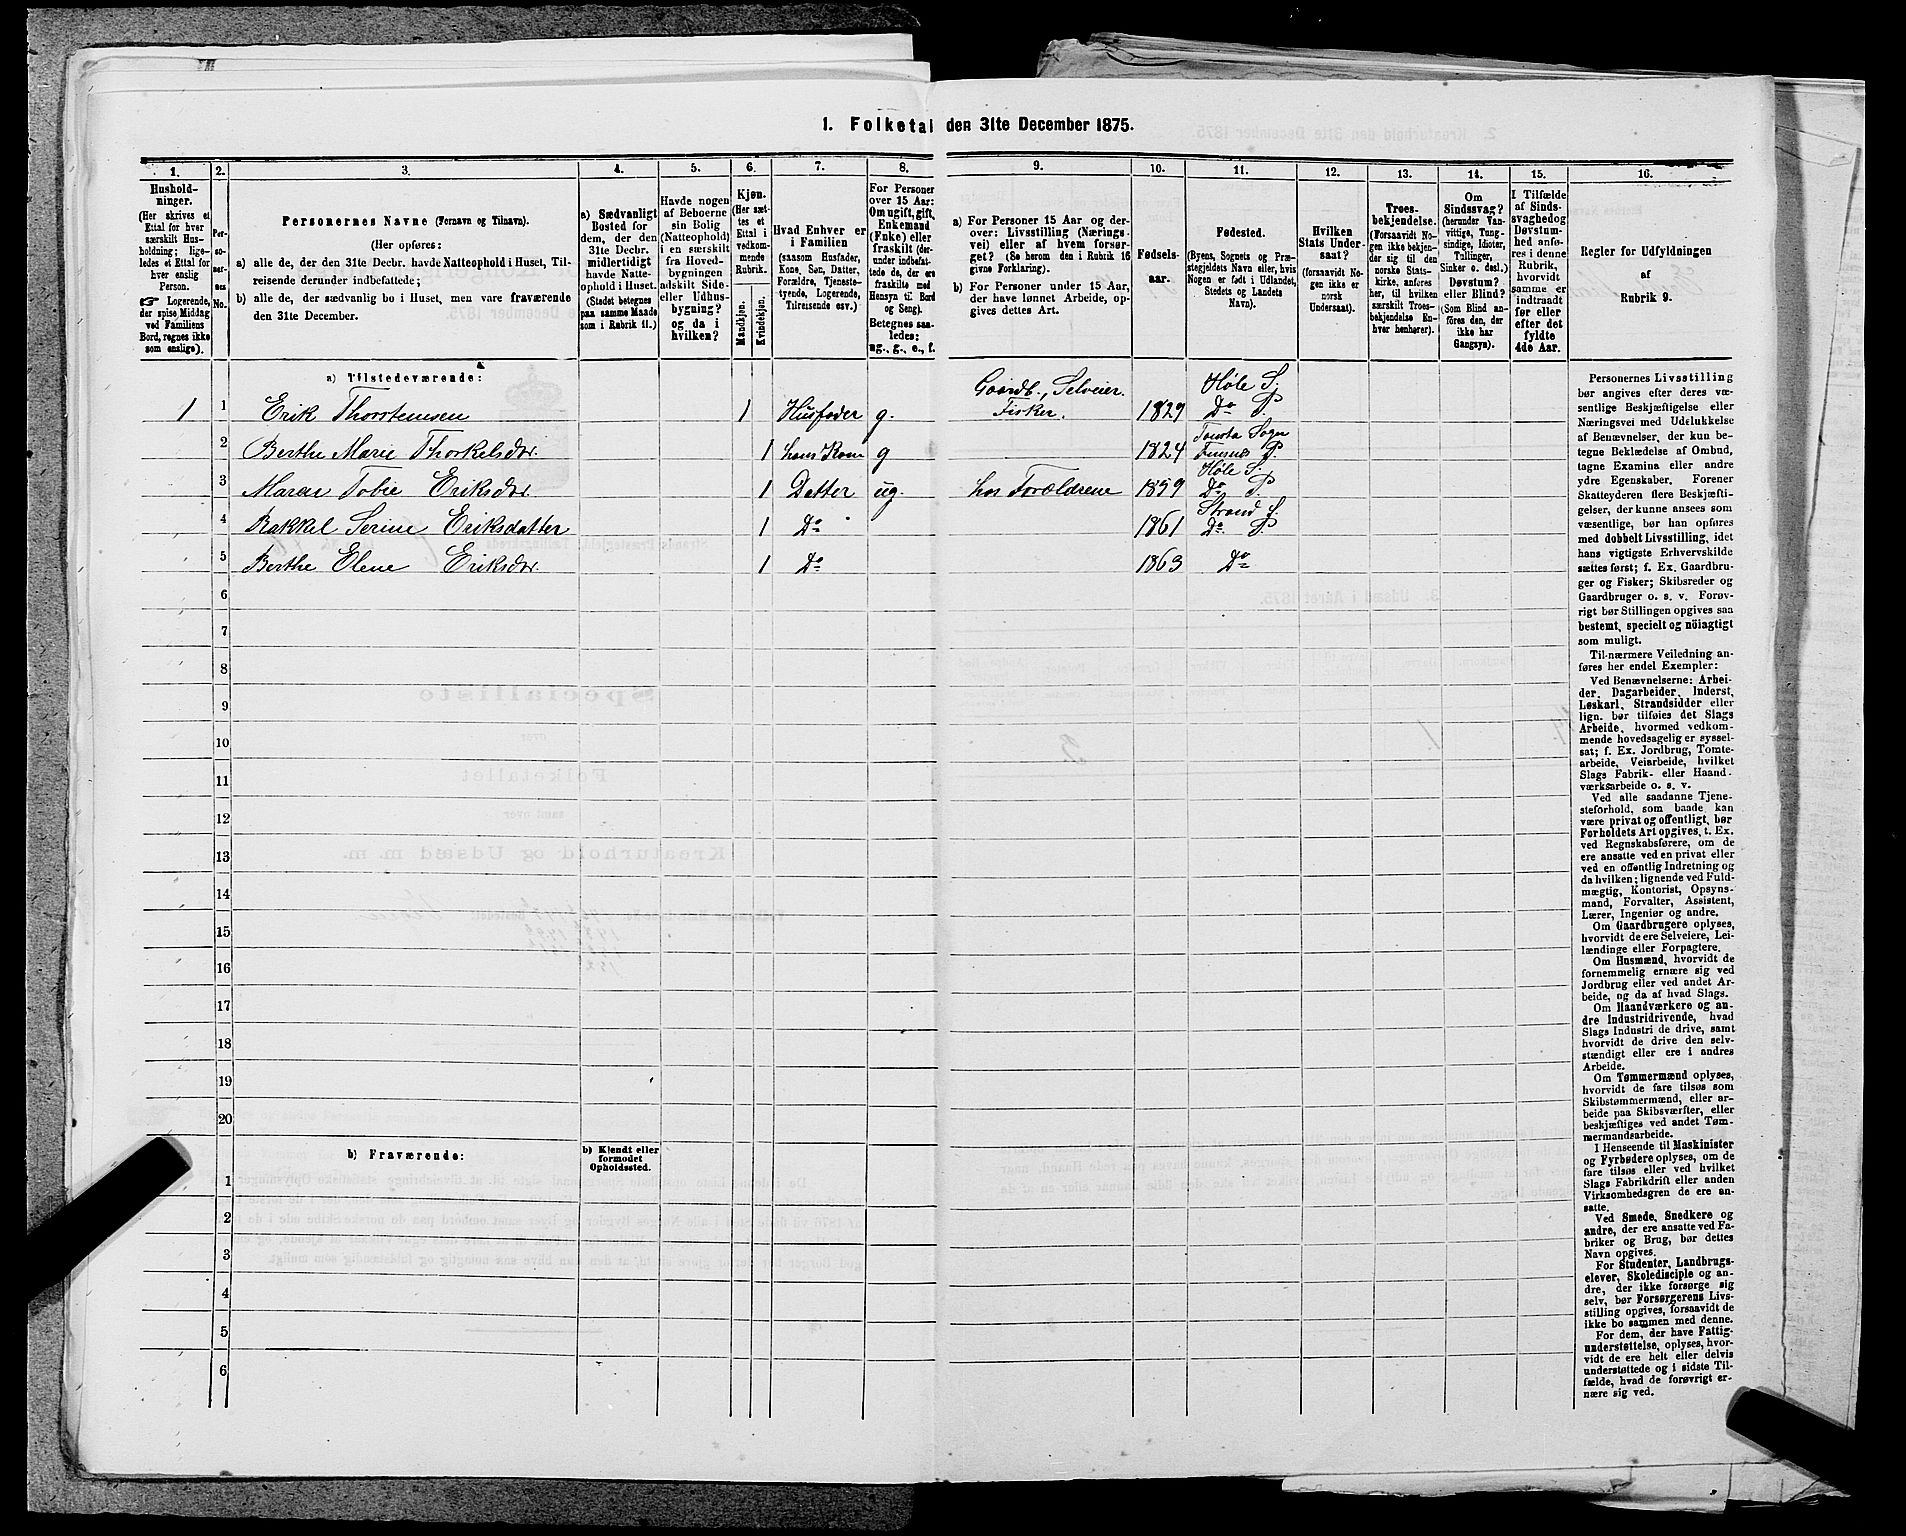 1. Folketal den 31te December 1875.
1.
Hushold-
ninger.
(Her skrives et
Ettal for hver
særskilt Hus-
holdning; lige-
ledes et Ettal for
hver enslig
Person.
☞ Logerende,
der spise Middag
ved Familiens
Bord, regnes ikke
som enslige).
2.
Per-
so-
ner-
nes
No.
3.
Personernes Navne (Fornavn og Tilnavn).
(Her opføres:
a) alle de, der den 31te Decbr. havde Natteophold i Huset, Til-
reisende derunder indbefattede;
b) alle de, der sædvanlig bo i Huset, men vare fraværende
den 31te December.
4.
a) Sædvanligt
Bosted for
dem, der den
31te Decbr.
midlertidigt
havde Natte-
ophold i Huset.
(Stedet betegnes
paa samme Maade
som i Rubrik 11.)
5.
Havde nogen
af Beboerne
sin Bolig
(Natteophold)
i en særskilt
fra Hoved-
bygningen
adskilt Side-
eller Udhus-
bygning?
og da i
hvilken?
6.
Kjøn.
(Her sæt-
tes et
Ettal i
vedkom-
mende
Rubrik.
Mandkjøn.
Kvindekjøn.
7.
Hvad Enhver er
i Familien
(saasom Husfader,
Kone, Søn, Datter,
Forældre, Tjeneste-
tyende, Logerende,
Tilreisende osv.)
8.
For Personer
over 15 Aar:
Om ugift, gift,
Enkemand
(Enke) eller
fraskilt (der-
under indbefat-
tede de, der ere
fraskilte med
Hensyn til Bord
og Seng).
Betegnes saa-
ledes:
ug., g., e., f.
9.
a) For Personer 15 Aar og der-
over: Livsstilling (Nærings-
vei) eller af hvem forsør-
get? (Se herom den i Rubrik 16
givne Forklaring).
b) For Personer under 15 Aar,
der have lønnet Arbeide, op-
gives dettes Art.
10.
Fødsels-
aar.
11.
Fødested.
(Byens, Sognets og Præ-
stegjeldets Navn eller, hvis
Nogen er født i Udlandet,
Stedets og Landets
Navn).
12.
Hvilken
Stats Under-
saat?
(forsaavidt No-
gen ikke er
norsk
Undersaat).
13.
Troes-
bekjendelse.
(Forsaavidt No-
gen ikke bekjen-
der sig til den
norske Stats-
kirke, anføres
her, til hvilken
særskilt Troes-
bekjendelse En-
hver henhører).
14.
Om
Sindssvag?
(herunder Van-
vittige, Tung-
sindige, Idioter,
Tullinger,
Sinker o. desl.)
Døvstum?
eller Blind?
(Som Blind an-
føres den, der
ikke har
Gangsyn).
15.
I Tilfælde
af Sinds-
svaghed og
Døvstum-
hed anfø-
res i denne
Rubrik,
hvorvidt
samme er
indtraadt
før eller
efter det
fyldte
4de Aar.
16.
Regler for Udfyldningen
af
Rubrik 9.
a) Tilstedeværende:
1 1 Erik Thorstensen 1 Husfader g. Gaardb., Selveier. Fisker. 1829 Høle S. Do P.
2 Berthe Marie Thorkelsdr. 1 hans Kone g 1824 Sogn P.
3 Maren Tobie Eriksdr. 1 Datter ug. hos Forældrene 1859 Høle S. Do P.
4 Rakkel Serine Eriksdatter 1 Do 1861 Strand S. Do P.
5 Berthe Elene Eriksdr. 1 Do 1863 Do
6
7
8
9
10
11
12
13
14
15
16
17
18
19
20
b) Fraværende:
b) Kjendt eller
formodet
Opholdssted.
1
2
3
4
5
6
Personernes Livsstilling
bør angives efter deres væ-
sentlige Beskjæftigelse eller
Næringsvei med Udelukkelse
af Benævnelser, der kun be-
tegne Beklædelse af Ombud,
tagne Examina eller andre
ydre Egenskaber. Forener
Skatteyderen flere Beskjæfti-
gelser, der kunne ansees som
væsentlige, bør han opføres
med dobbelt Livsstilling, idet
hans vigtigste Erhvervskilde
sættes først; f. Ex. Gaardbru-
ger og Fisker; Skibsreder og
Gaardbruger o. s. v. Forøv-
rigt bør Stillingen opgives saa
bestemt, specielt og nöiagtigt
som muligt.
Til nærmere Veiledning an-
føres her endel Exempler:
Ved Benævnelserne: Arbei-
der, Dagarbeider, Inderst,
Løskarl, Strandsidder eller
lign. bør tilføies det Slags
Arbeide, hvormed vedkom-
mende hovedsagelig er syssel-
sat; f. Ex. Jordbrug, Tomte-
arbeide, Veiarbeide, hvilket
Slags Fabrik- eller Haand-
værksarbeide o. s. v.
Ved alle saadanne Tjene-
steforhold, som baade kan
være privat og offentligt, bør
Forholdets Art opgives, t. Ex.
ved Regnskabsførere, om de
ere ansatte ved en privat eller
ved en offentlig Indretning og
da hvilken; lignende ved Fuld-
mægtig, Kontorist, Opsyns-
mand, Forvalter, Assistent,
Lærer, Ingeniør og andre.
Om Gaardbrugere oplyses,
hvorvidt de ere Selveiere, Lei-
lændinge eller Forpagtere.
Om Husmænd, hvorvidt de
fornemmelig ernære sig ved
Jordbrug eller ved andet Ar-
beide, og da af hvad Slags.
Om Haandværkere og an-
dre Industridrivende, hvad
Slags Industri de drive, samt
hvorvidt de drive den selv-
stændigt eller ere i andres
Arbeide.
Om Tømmermænd oplyses,
hvorvidt de fare tilsøs som
Skibstømmermænd, eller ar-
beide paa Skibsværfter, eller
beskjæftiges ved andet Tøm-
mermandsarbeide.
I Henseende til Maskinister
og Fyrbødere oplyses, om de
fare tilsøs eller ved hvilket
Slags Fabrikdrift eller anden
Virksomhedsgren de ere an-
satte.
Ved Smede, Snedkere og
andre, der ere ansatte ved Fa-
briker og Brug, bør dettes
Navn opgives.
For Studenter, Landbrugs-
elever, Skoledisciple og an-
dre, der ikke forsørge sig
selv, bør Forsørgerens Livs-
stilling opgives, forsaavidt de
ikke bo sammen med denne.
For dem, der have Fattig-
understøttelse, oplyses, hvor-
vidt de ere helt eller delvis
understøttede og i sidste Til-
fælde, hvad de forøvrigt er-
nære sig ved.